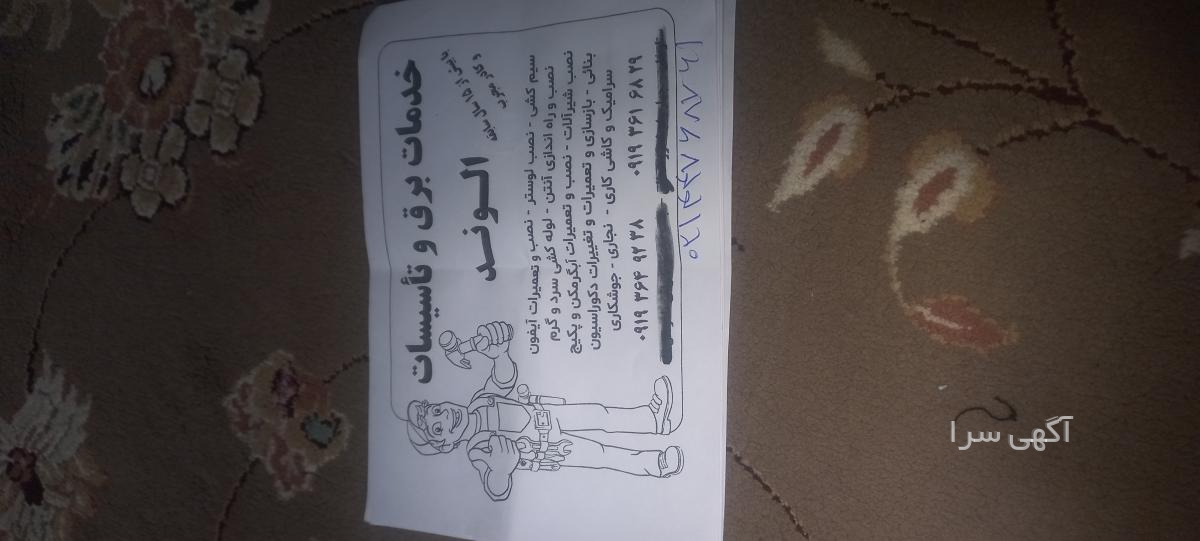 خدمات برق و تأسیسات
الوند
با بیش از ۱۵ سال سابقه
و کادر مجرب
سیم کشی - نصب لوستر - نصب و تعمیرات آیفون
نصب و راه اندازی آنتن - لوله کشی سرد و گرم
نصب شیرآلات - نصب و تعمیرات آبگرمکن و پکیج
بنائی - بازسازی و تعمیرات و تغییرات دکوراسیون
سرامیک و کاشی کاری - نجاری - جوشکاری
۰۹۱۹ ۳۶۱ ۶۸ ۲۹
۰۹۱۹ ۳۶۴ ۹۲ ۳۸
آگهی سرا